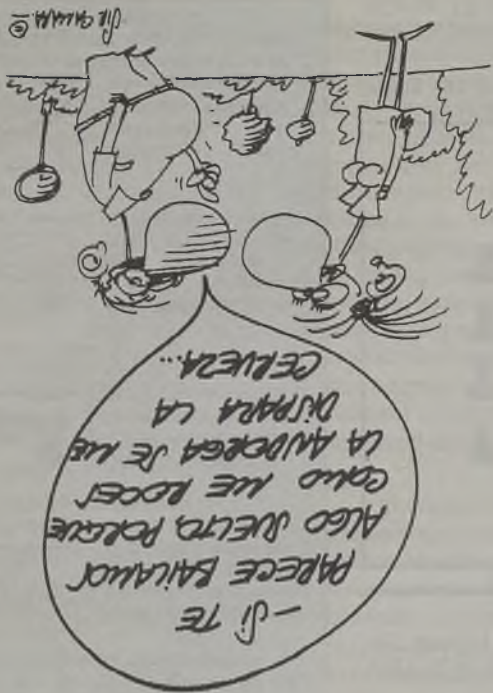 —Si TE
PARECE BAiLAMOS
ALGO SUELTO, PORQUE
COMO ME ROCES
LA ANDORGA SE ME
DiSPARA LA
CERVEZA...
SiR CAMARA